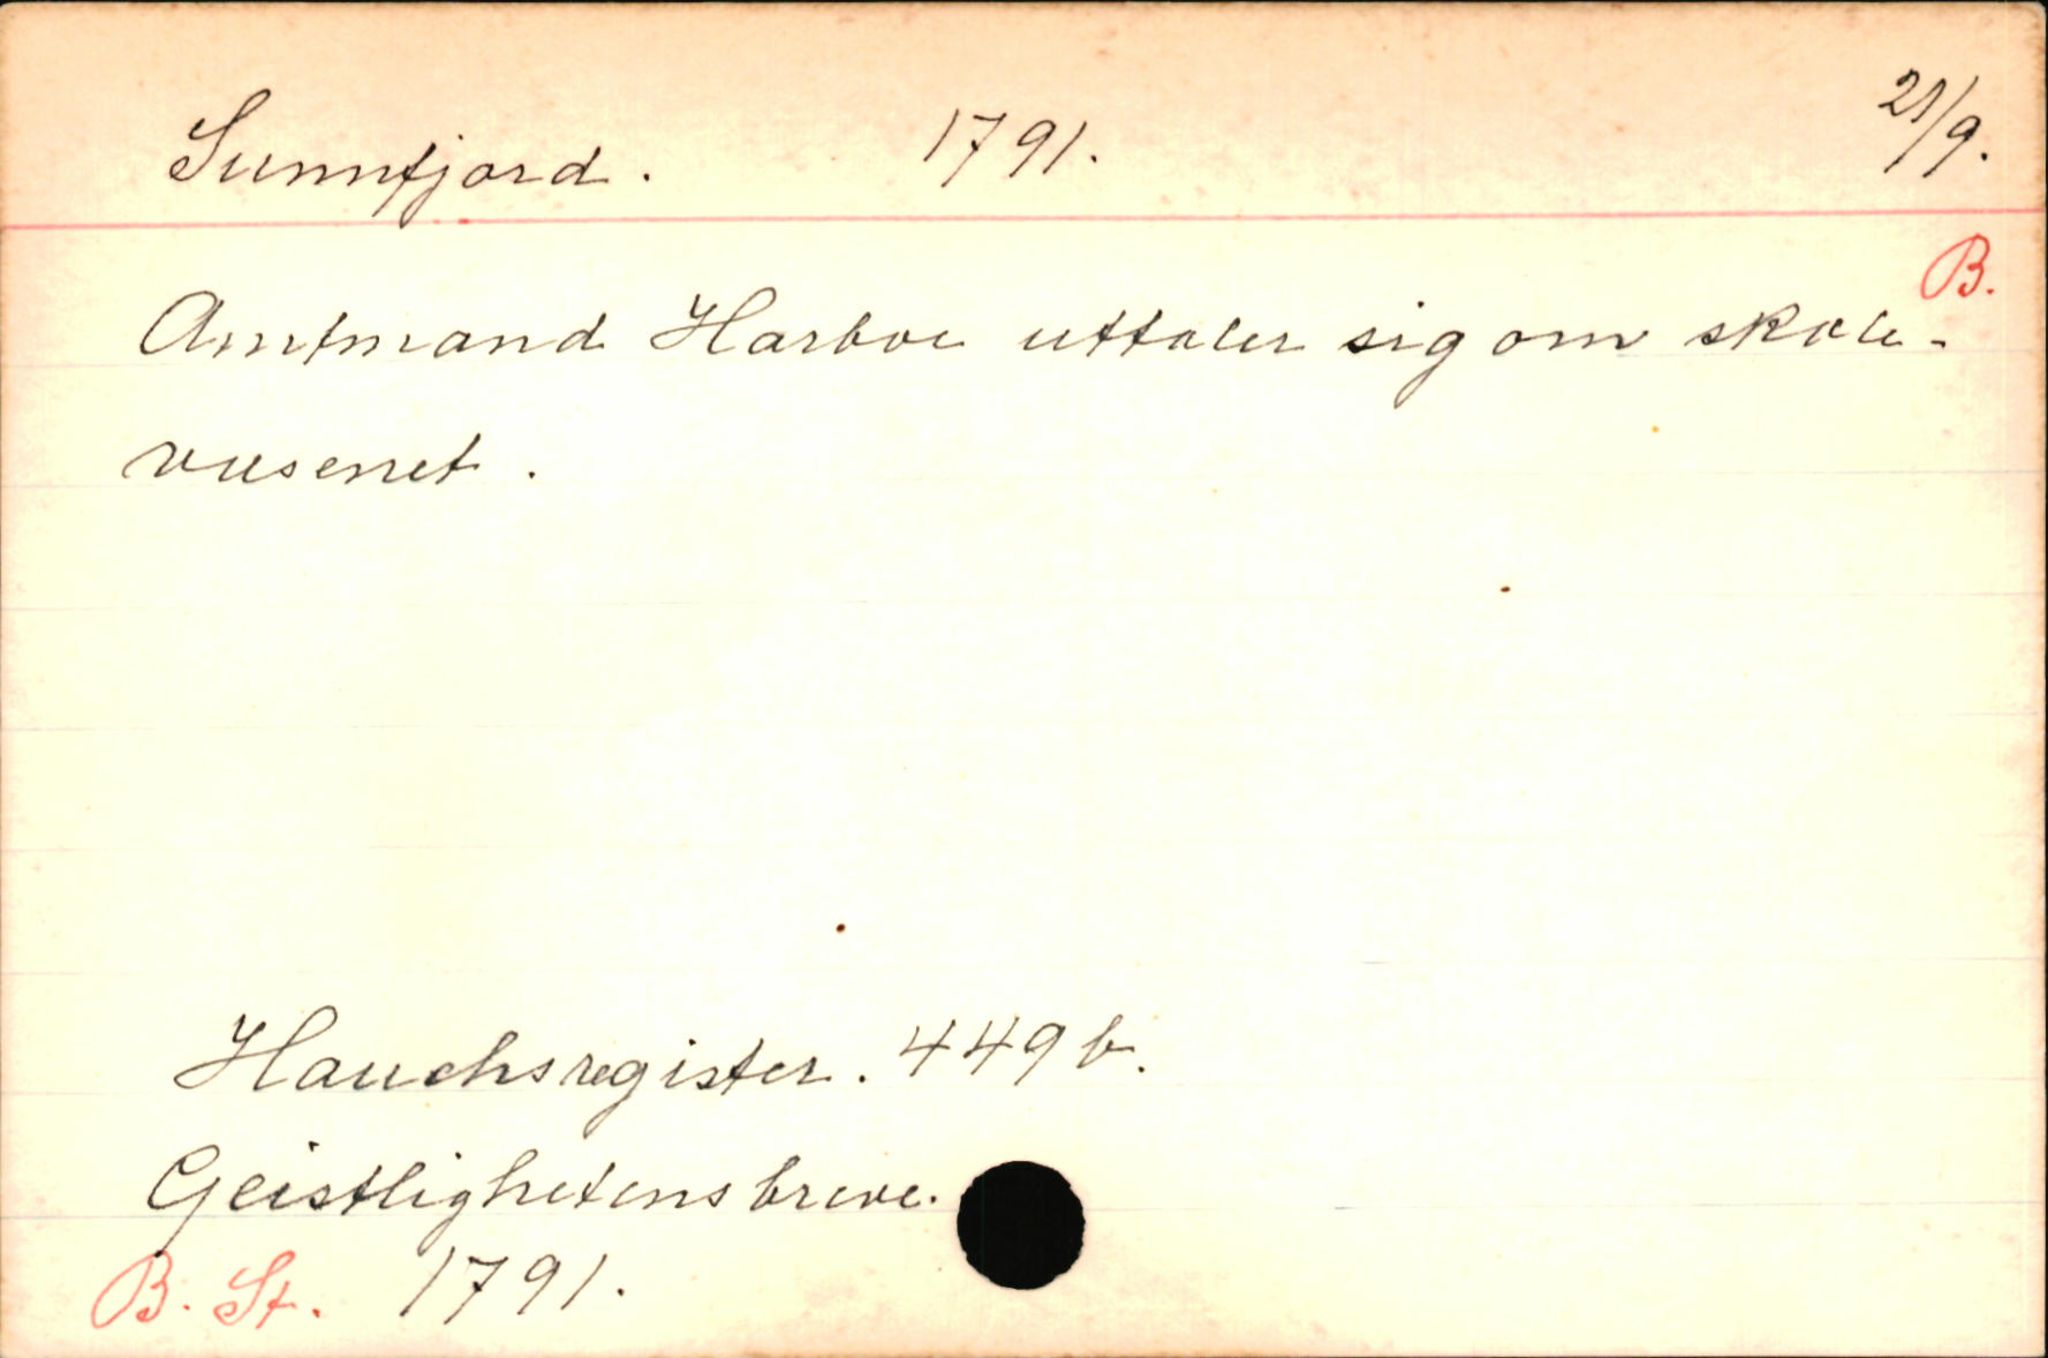 Sunnfjord. 1791. 21/9.
B.
Amtmand Harboe uttaler sig om skole-
væsenet.
Hauchsregister. 449 b.
Geistlighetens breve.
B. St. 1791.